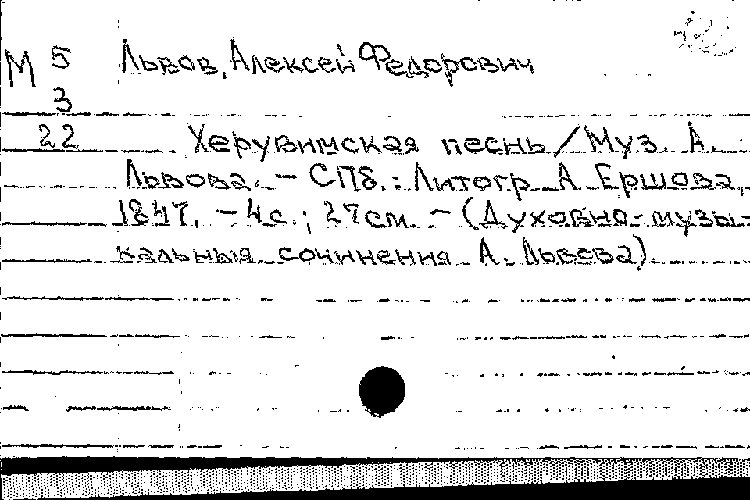 М 5 Львов, Алексей Федорович
3
22 Херувимская песнь / Муз. А.
Львова. – СПб.: Литогр. А. Ершова,
1847. – 4с.; 27см. – (Духовно-музы-
кальныя сочинения А. Львова)